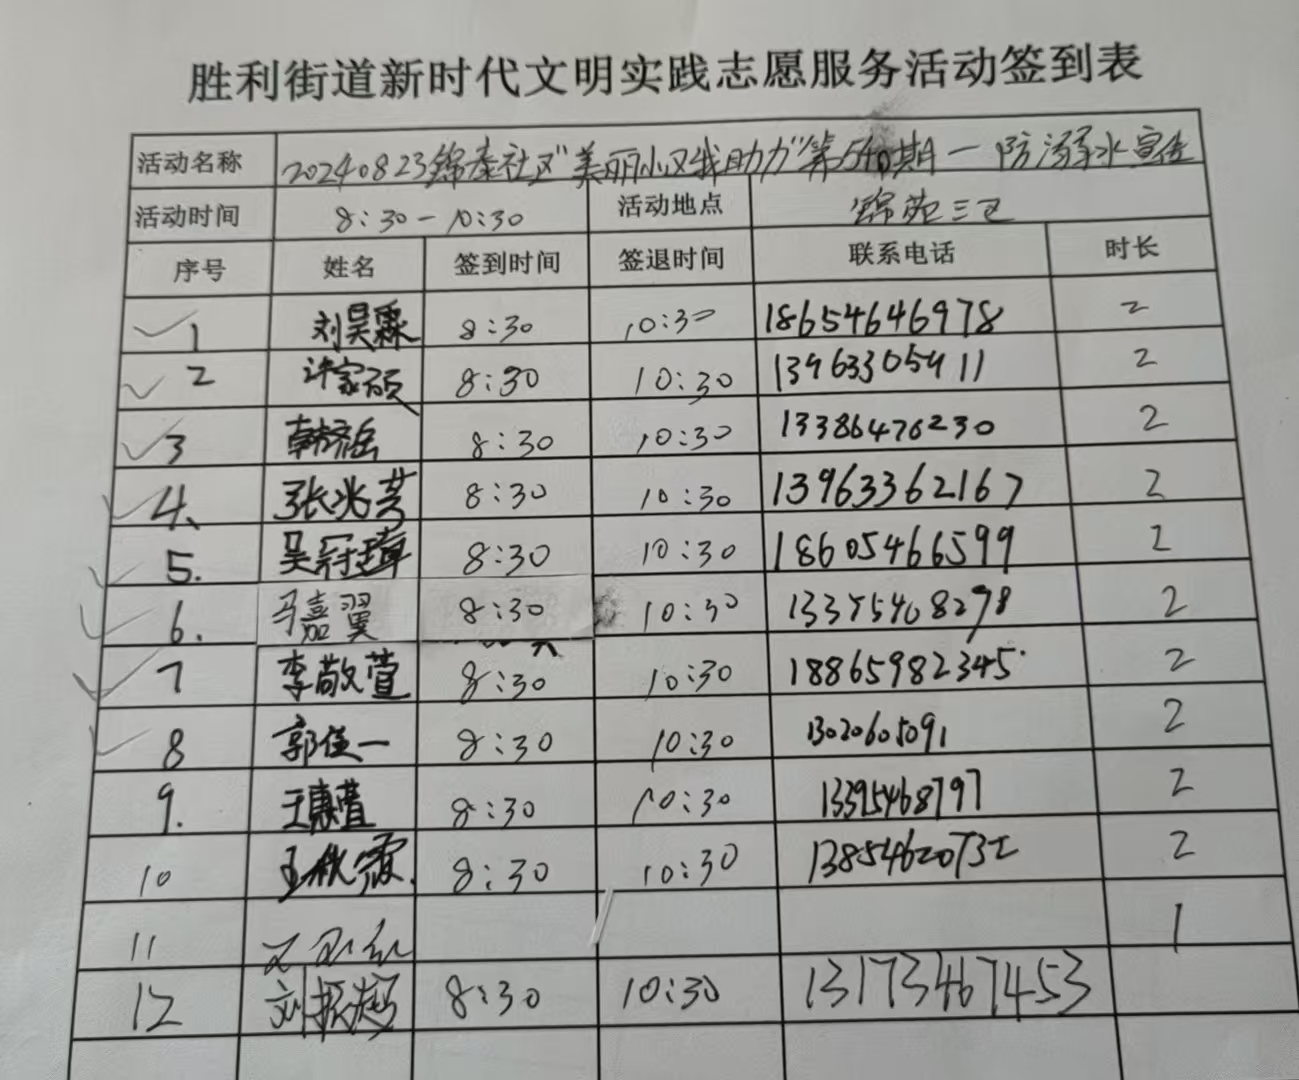 胜利街道新时代文明实践志愿服务活动签到表
活动名称 20240823锦泰社区"美丽小区我助力"第540期—防溺水宣传
活动时间 8:30-10:30 活动地点 锦苑三区
序号 姓名 签到时间 签退时间 联系电话 时长
1 刘昊霖 8:30 10:30 18654646978 2
2 许家硕 8:30 10:30 13963305411 2
3 韩岳 8:30 10:30 13386476230 2
4、 张兆芳 8:30 10:30 13963362167 2
5. 吴冠璋 8:30 10:30 18605466599 2
6. 马嘉翼 8:30 10:30 2
7 李敬萱 8:30 10:30 18865982345 2
8 郭俊一 8:30 10:30 13020605091 2
9. 王惠萱 8:30 10:30 13395468797 2
10 王秋霖 8:30 10:30 13854620732 2
11 1
12 刘振超 8:30 10:30 13173467453